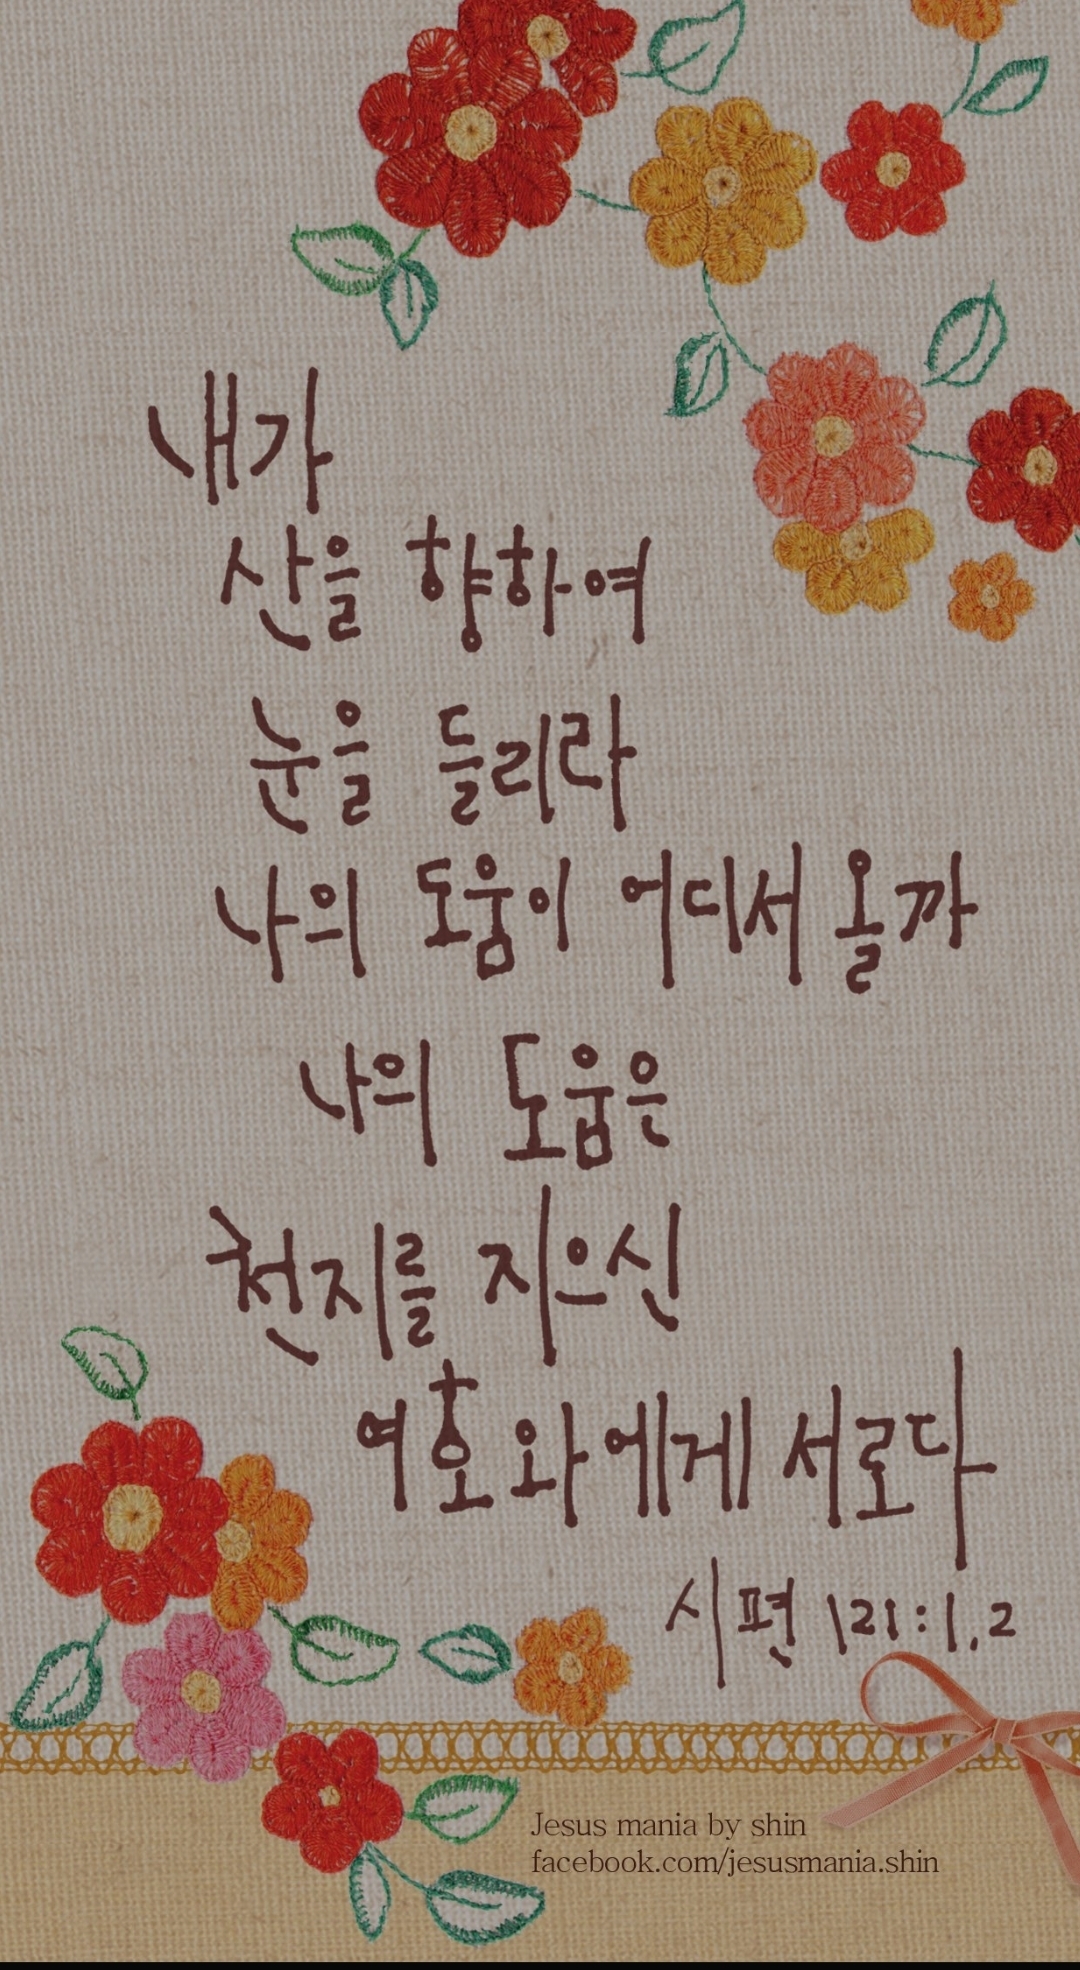 내가
산을 향하여
눈을 들리라
나의 도움이 어디서 올까
나의 도움은
천지를 지으신
여호와에게서로다
시편 121:1,2
Jesus mania by shin
facebook.com/jesusmania.shin